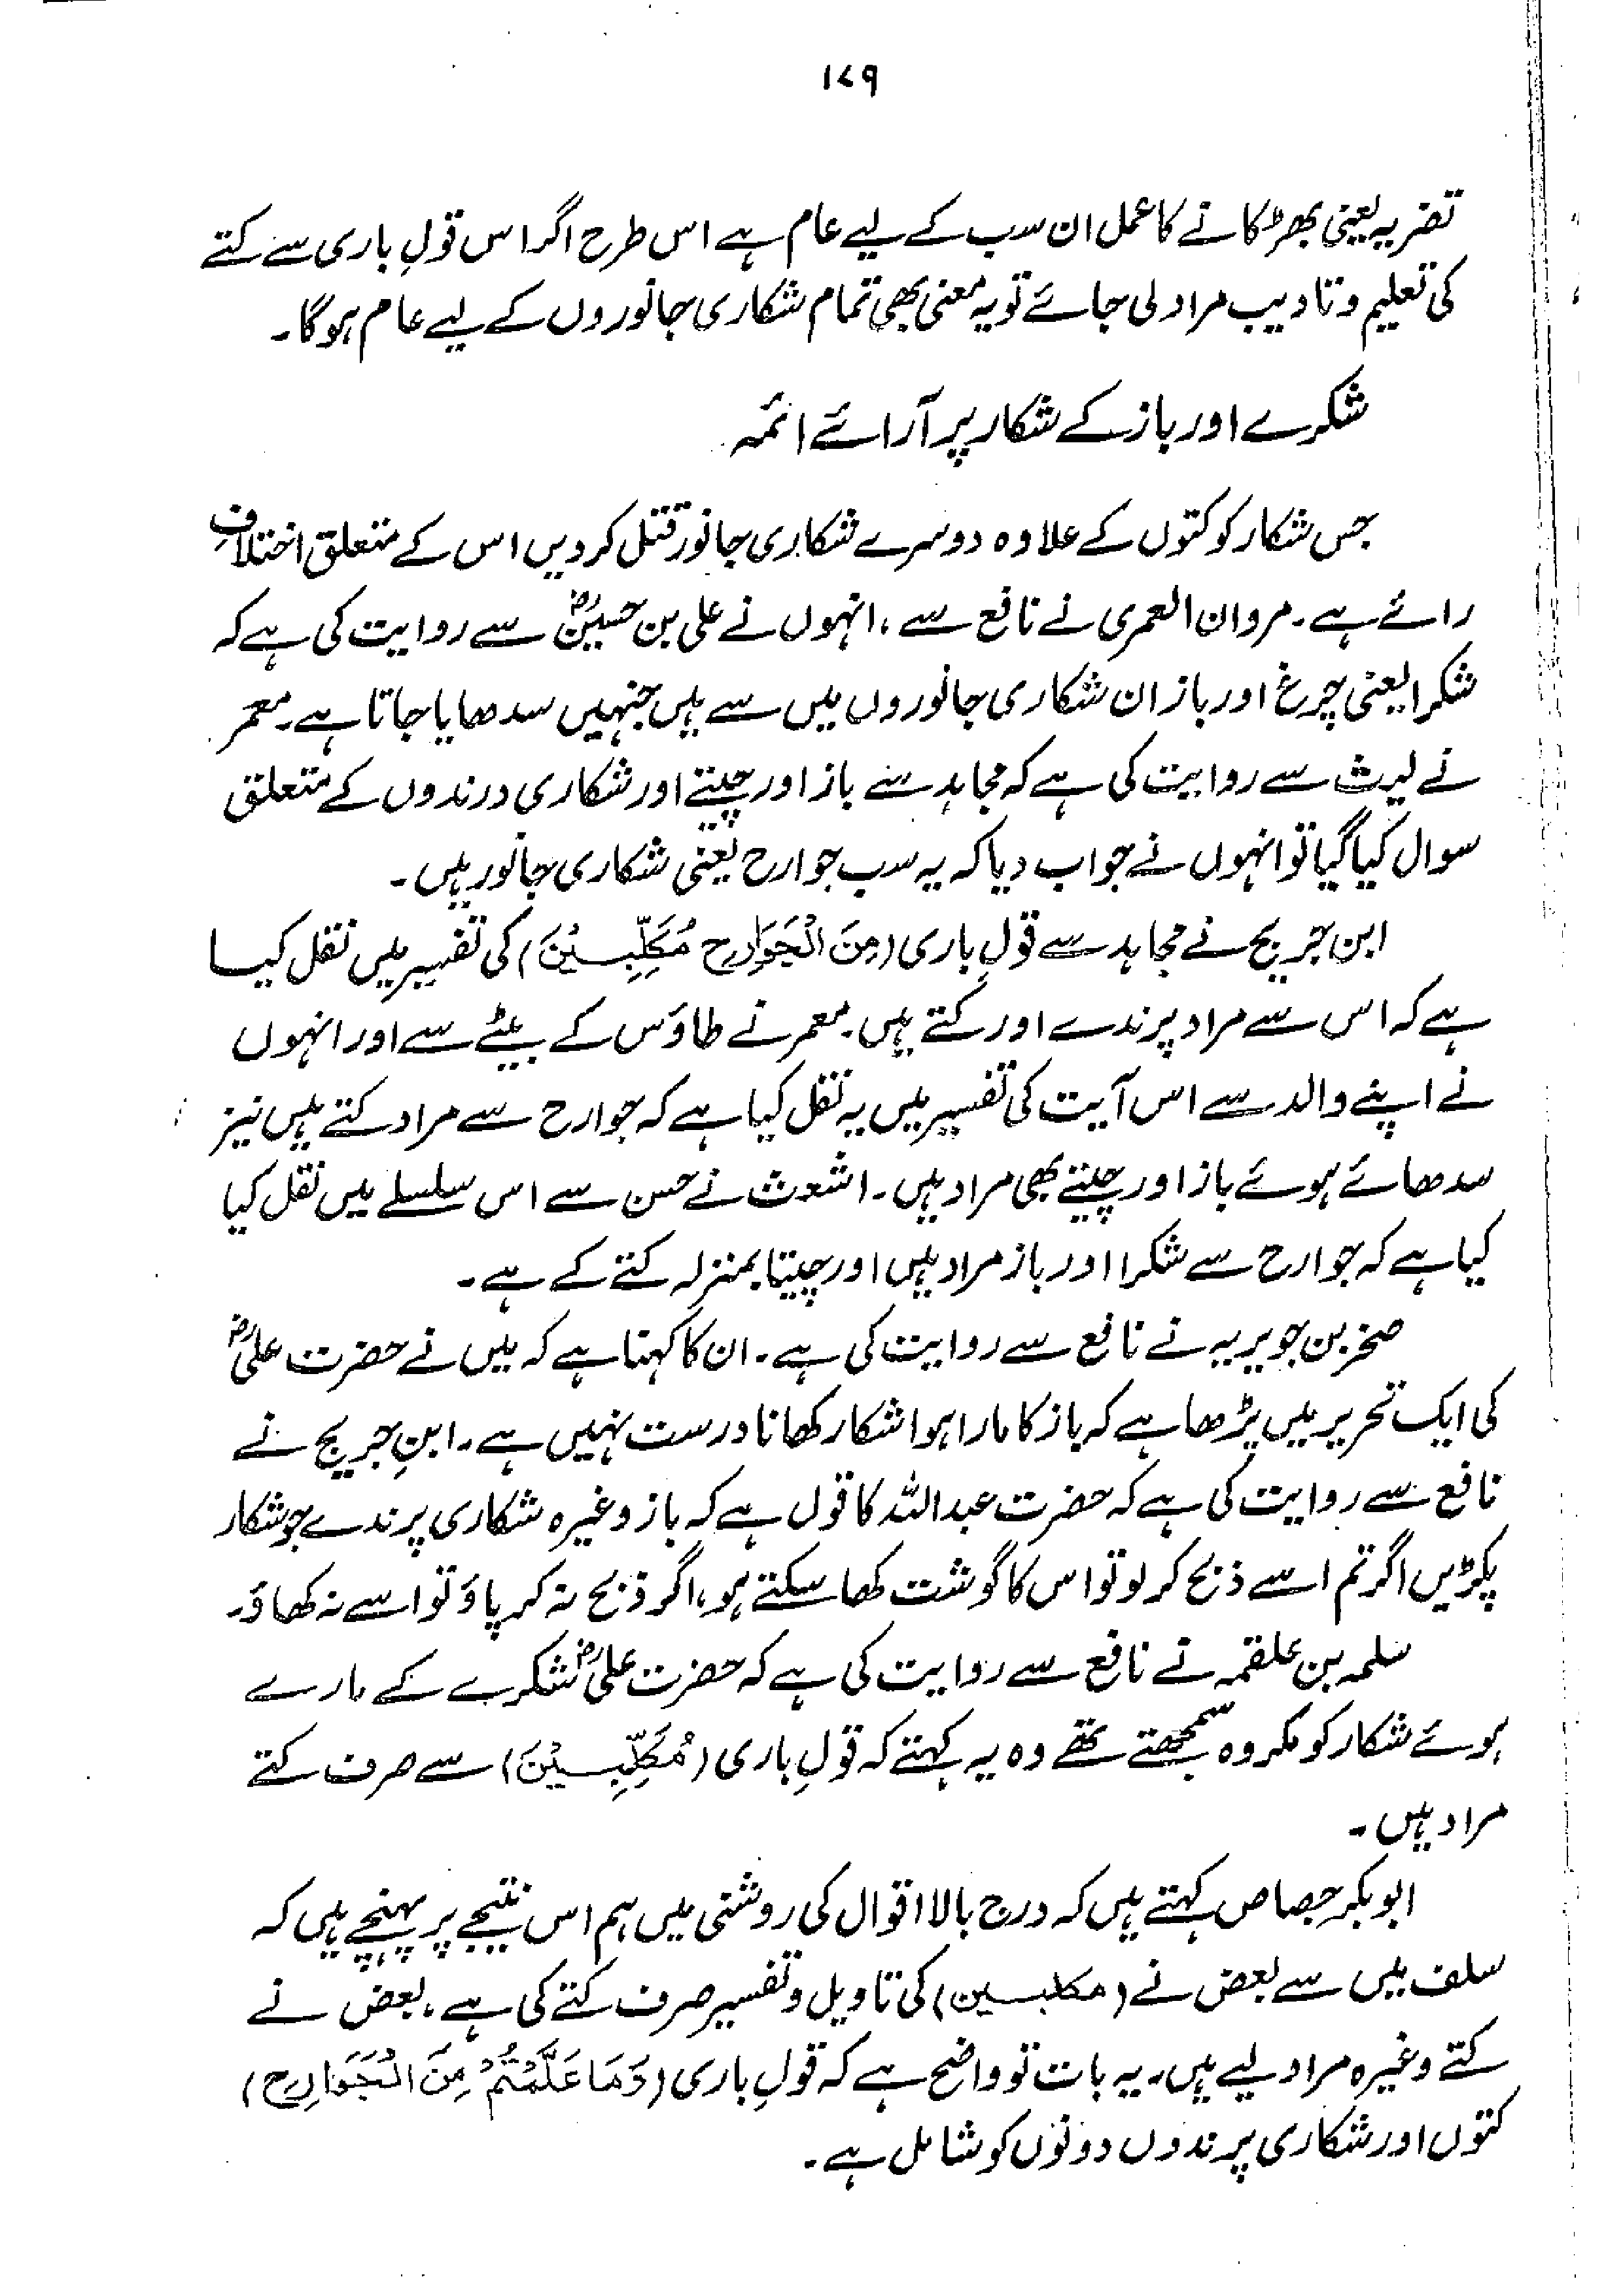 ۱۷۹
تضریہ یعنی بھڑکانے کا عمل ان سب کے لیے عام ہے اس طرح اگر اس قولِ باری سے کتے
کی تعلیم و تادیب مراد لی جائے تو یہ معنی بھی تمام شکاری جانوروں کے لیے عام ہوگا۔
شکرے اور باز کے شکار پر آرائے ائمہ
جس شکار کو کتوں کے علاوہ دوسرے شکاری جانور قتل کر دیں اس کے متعلق اختلافِ
رائے ہے۔ مروان العمری نے نافع سے، انہوں نے علی بن حسینؓ سے روایت کی ہے کہ
شکرا یعنی چرغ اور باز ان شکاری جانوروں میں سے ہیں جنہیں سدھایا جاتا ہے۔ معمر
نے لیث سے روایت کی ہے کہ مجاہد سے باز اور چیتے اور شکاری درندوں کے متعلق
سوال کیا گیا تو انہوں نے جواب دیا کہ یہ سب جوارح یعنی شکاری جانور ہیں۔
ابن جریج نے مجاہد سے قولِ باری (مِنَ الْجَوَارِحِ مُكَلِّبِيْنَ) کی تفسیر میں نقل کیا
ہے کہ اس سے مراد پرندے اور کتے ہیں۔ معمر نے طاؤس کے بیٹے سے اور انہوں
نے اپنے والد سے اس آیت کی تفسیر میں یہ نقل کیا ہے کہ جوارح سے مراد کتے ہیں نیز
سدھائے ہوئے باز اور چیتے بھی مراد ہیں۔ اشعث نے حسن سے اس سلسلے میں نقل کیا
کیا ہے کہ جوارح سے شکرا اور باز مراد ہیں اور چیتا بمنزلہ کتے کے ہے۔
صخر بن جویریہ نے نافع سے روایت کی ہے۔ ان کا کہنا ہے کہ میں نے حضرت علیؓ
کی ایک تحریر میں پڑھا ہے کہ باز کا مارا ہوا شکار کھانا درست نہیں ہے۔ ابنِ جریج نے
نافع سے روایت کی ہے کہ حضرت عبداللہ کا قول ہے کہ باز وغیرہ شکاری پرندے جو شکار
پکڑیں اگر تم اسے ذبح کر لو تو اس کا گوشت کھا سکتے ہو، اگر ذبح نہ کر پاؤ تو اسے نہ کھاؤ۔
سلمہ بن علقمہ نے نافع سے روایت کی ہے کہ حضرت علیؓ شکرے کے مارے
ہوئے شکار کو مکروہ سمجھتے تھے وہ یہ کہتے کہ قولِ باری (مُكَلِّبِيْنَ) سے صرف کتے
مراد ہیں۔
ابوبکر جصاص کہتے ہیں کہ درج بالا اقوال کی روشنی میں ہم اس نتیجے پر پہنچے ہیں کہ
سلف میں سے بعض نے (مکلبین) کی تاویل و تفسیر صرف کتے کی ہے، بعض نے
کتے وغیرہ مراد لیے ہیں۔ یہ بات تو واضح ہے کہ قولِ باری (وَمَا عَلَّمْتُمْ مِنَ الْجَوَارِحِ)
کتوں اور شکاری پرندوں دونوں کو شامل ہے۔